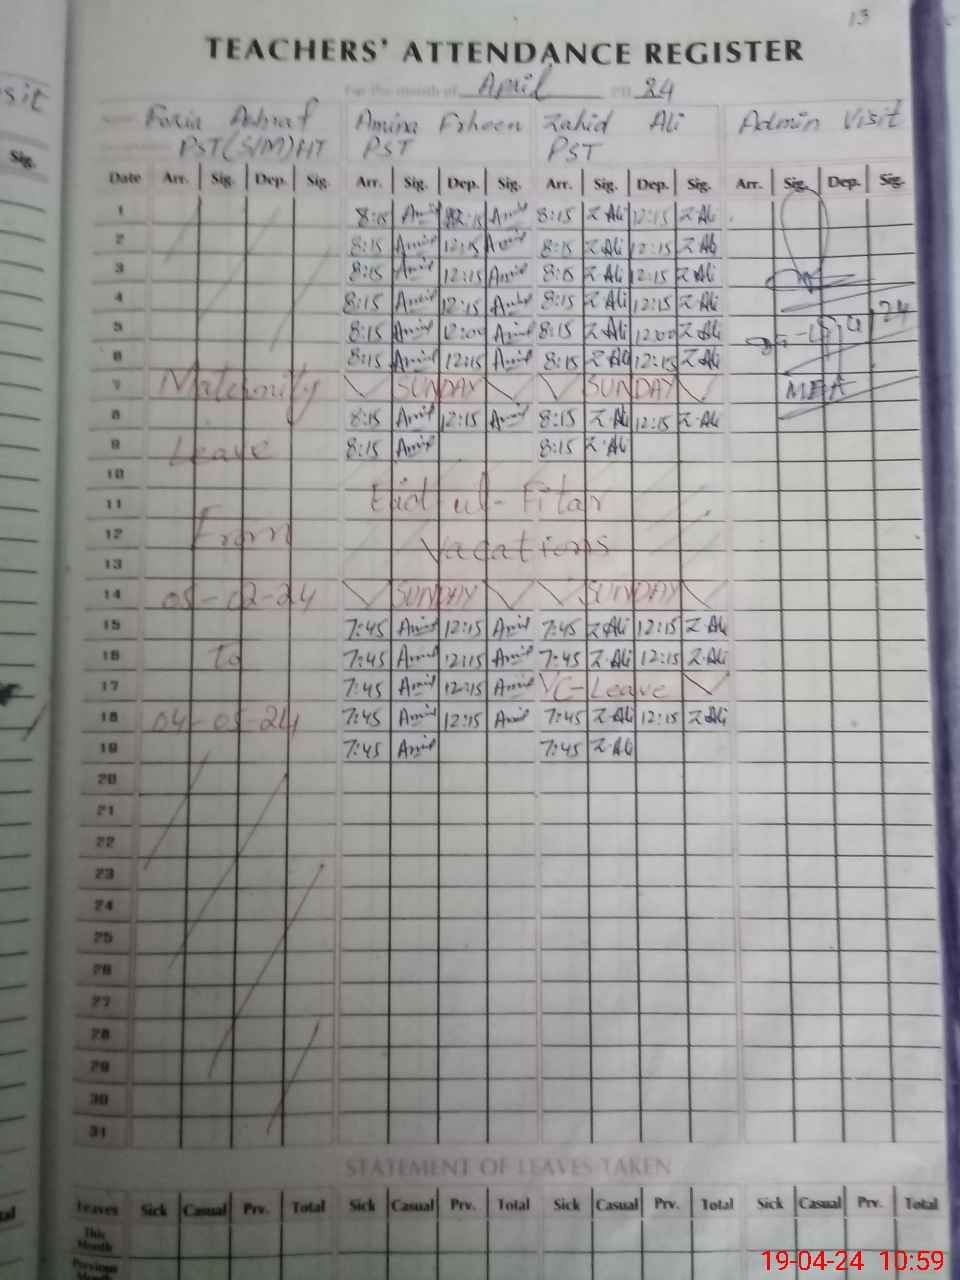 13
TEACHERS' ATTENDANCE REGISTER
For the month of April 20 24
Fozia Ashraf Amina Frheen Zahid Ali Admin Visit
PST(S/M)HT PST PST
sit
Sig.
Date Arr. Sig. Dep. Sig. Arr. Sig. Dep. Sig. Arr. Sig. Dep. Sig. Arr. Sig. Dep. Sig.
1 8:15 12:15 8:15 Z Ali 12:15 Z.Ali
2 8:15 12:15 8:15 Z Ali 12:15 Z.Ali
3 8:15 12:15 8:15 Z Ali 12:15 Z.Ali
4 8:15 12:15 8:15 Z Ali 12:15 Z.Ali
5 8:15 12:00 8:15 Z Ali 12:00 Z.Ali 24
6 8:15 12:15 8:15 Z Ali 12:15 Z.Ali
7 Maternity SUNDAY SUNDAY MEA
8 8:15 12:15 8:15 Z.Ali 12:15 Z.Ali
9 Leave 8:15 8:15 Z.Ali
10
11 Eid-ul-Fitar
12 From Vacations
13
14 05-02-24 SUNDAY SUNDAY
15 7:45 12:15 7:45 Z.Ali 12:15 Z.Ali
16 to 7:45 12:15 7:45 Z.Ali 12:15 Z.Ali
17 7:45 12:15 C-Leave
18 04-05-24 7:45 12:15 7:45 Z.Ali 12:15 Z.Ali
19 7:45 7:45 Z.Ali
20
21
22
23
24
25
26
27
28
29
30
31
STATEMENT OF LEAVES TAKEN
Leaves Sick Casual Prv. Total Sick Casual Prv. Total Sick Casual Prv. Total Sick Casual Prv. Total
This
Month
Previous
Month
19-04-24 10:59